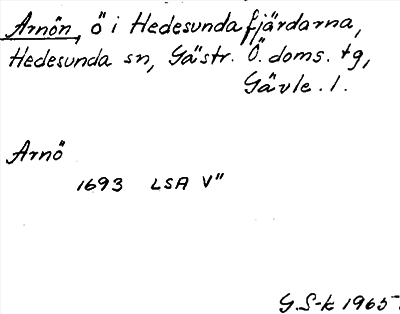 Arnön, ö i Hedesundafjärdarna,
Hedesunda sn, Gästr. Ö. doms. tg,
Gävle. l.
Arnö
1693 LSA V"
G. S-k 1965.